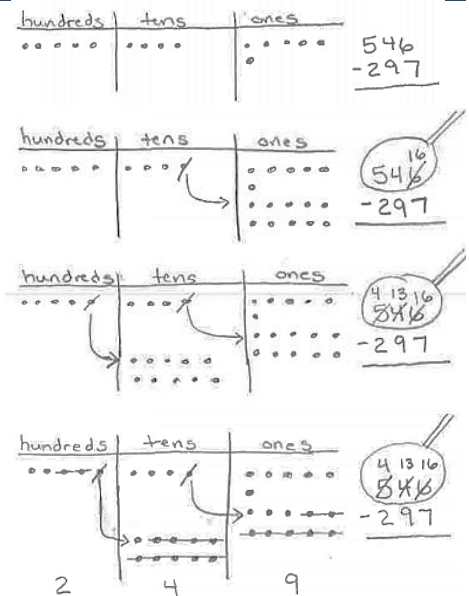 hundreds tens ones
546
-297
hundreds tens ones
16
546
-297
hundreds tens ones
4 13 16
546
-297
hundreds tens ones
4 13 16
546
-297
2 4 9